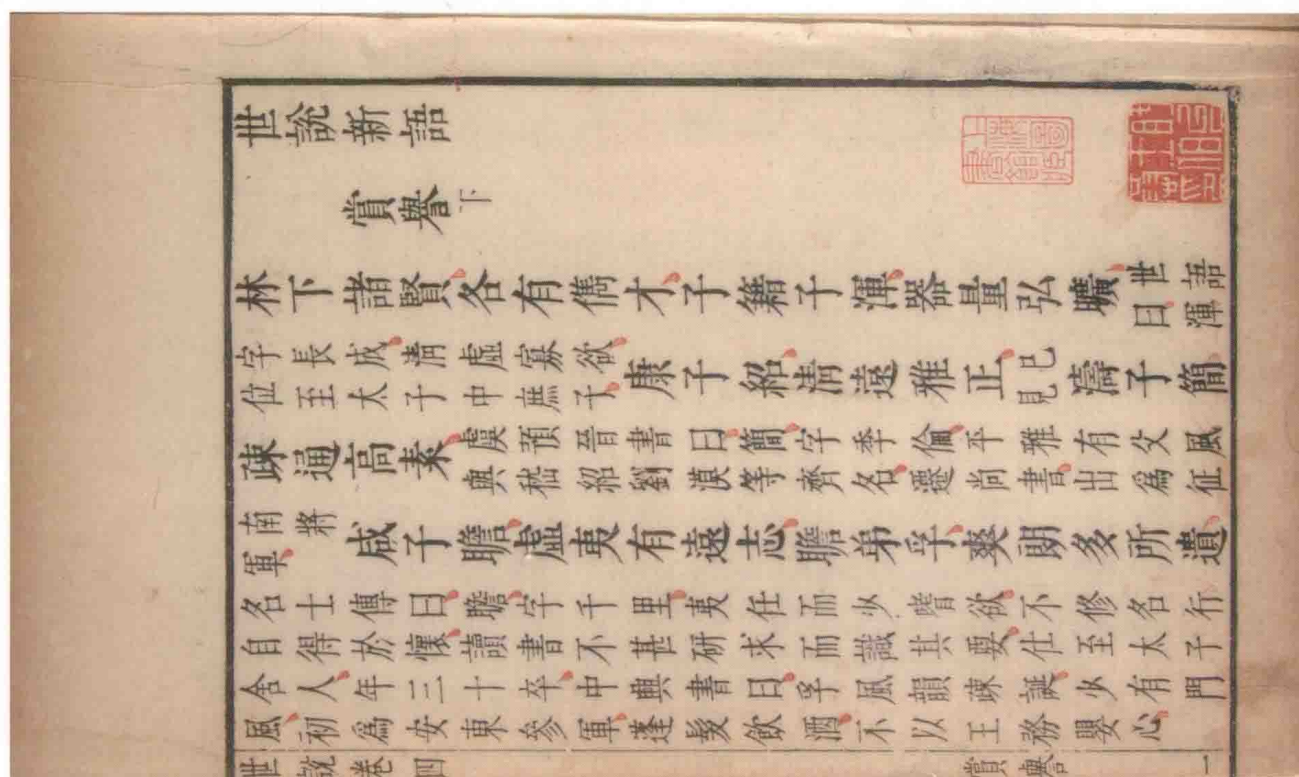 世說新語
賞譽下
林下諸賢各有儁才子籍子渾器量弘曠世語曰渾
字長成清虛寡欲位至太子中庶子康子紹清遠雅正已見濤子簡
疎通高素虞預晉書曰簡字季倫平雅有父風與嵇紹劉漠等齊名遷尚書出爲征
南將軍咸子瞻虛夷有遠志瞻弟孚爽朗多所遺
名士傳曰瞻字千里夷任而少嗜欲不修名行
自得於懷讀書不甚研求而識其要仕至太子
舍人年三十卒中興書曰孚風韻疎誕少有門
風初爲安東參軍蓬髮飲酒不以王務嬰心
世說卷四 賞譽 一